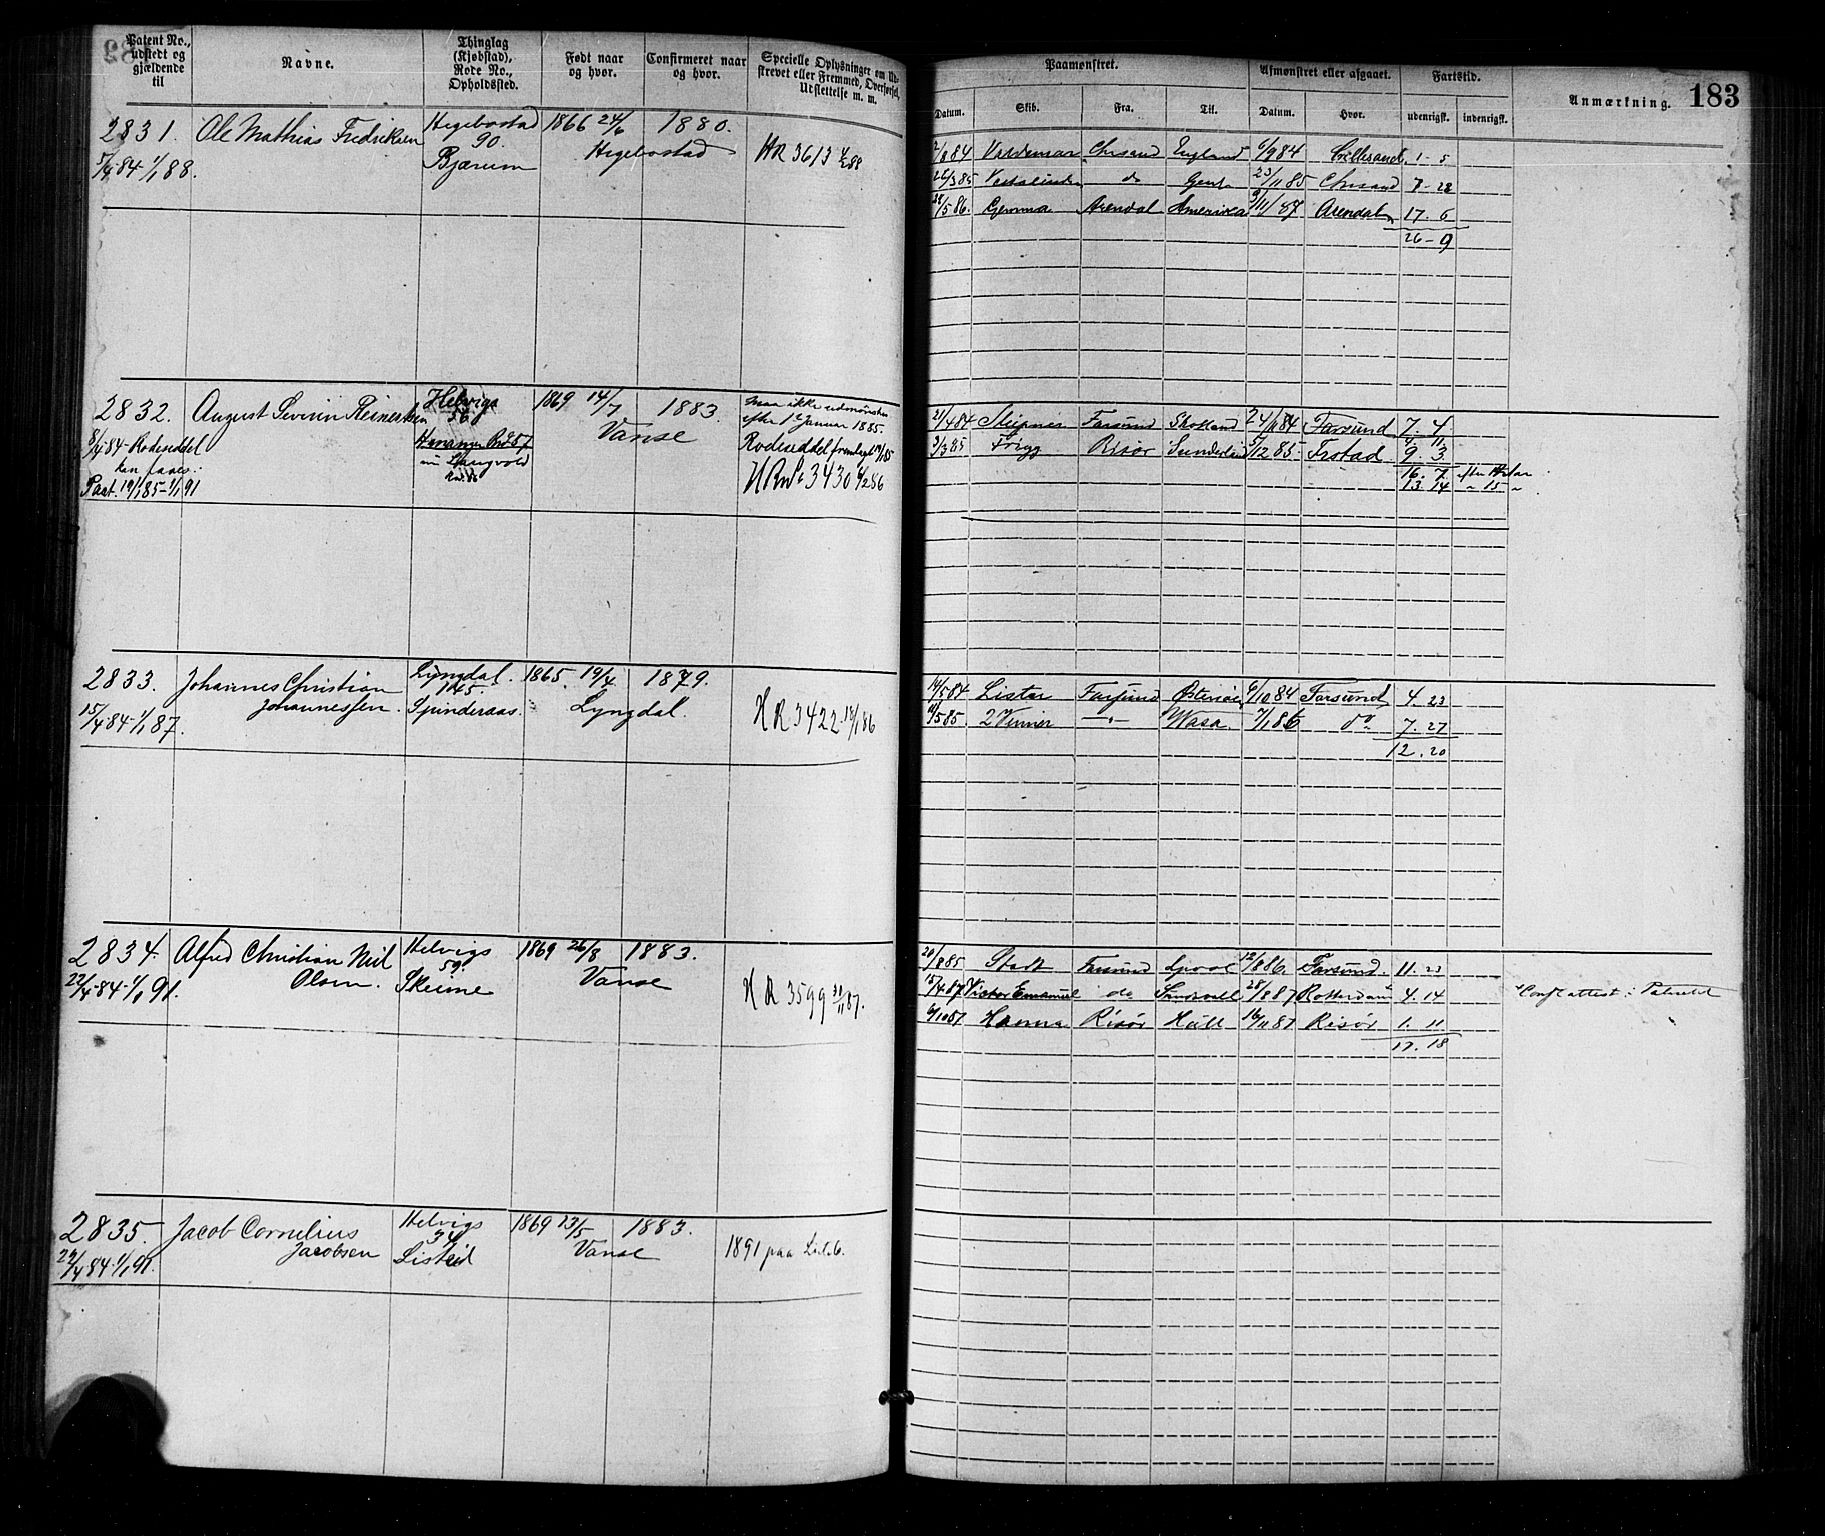 Patent No., udstedt og gjældende til
Navne.
Thinglag (Kjøbstad), Rode No., Opholdssted.
Født naar og hvor.
Confirmeret naar og hvor.
Specielle Oplysninger om Udskrevet eller Fremmed, Overførsel, Udslettelse m. m.
Paamønstret.
Afmønstret eller afgaaet.
Fartstid.
Anmærkning.
183
Datum. Skib. Fra. Til. Datum. Hvor. udenrigsk. indenrigsk.
2831. Ole Mathias Fredriksen Hegebostad 1866 24/6 1880.
90. Hegebostad HR 3613
5/4 84 1/1 88. Bjærum
84 Valdemar Chrsand England 84 Lillesand 1-5
26/3 85 do Gent 23/11 85 Chrsand 7-28
28/5 86. Gemma Arendal Amerika 9/11 87 Arendal 17. 6
26-9
2832. August Severin Reinertsen Helvigs 1869 14/7 1883. maa ikke udmønstres
56 Vanse efter 1 Januar 1885.
8/4 84 Rodeseddel Rodeseddel fremlagt
kan faaes.: nu Langvold HR No 3430 86
Pat. 19/1 85-1/1 91
21/4 84 Sleipner Farsund Skotland 84 Farsund 7. 4
3/3 85 Frigg Risør Sunderland 5/12 85 9. 3
16. 7.
13. 14 " 15 "
2833. Johannes Christian Lyngdal. 1865. 19/4 1879.
Johannessen. 145. Lyngdal.
15/4 84-1/1 87. Spinderaas. HR 3422 86
14/5 84 Lister Farsund 6/10 84 Farsund 4. 23
5 85 2 Venner -"- Wasa 7/1 86 do 7. 27
12. 20
2834. Alfred Christian Helvigs 1869 26/8 1883.
Olsen. 59. Vanse
22/4 84-1/1 91. Skeime HR 3599 87.
20/8 85 Stadt Farsund Lpool 12/8 86. Farsund. 11. 23
15/4 87 Victor Emanuel do 28/8 87 Rotterdam 4. 14
6/10 87 Hanna Risør Hull 16/11 87 Risør 1. 11
17. 18
2835. Jacob Cornelius Helvigs 1869 23/5 1883.
Jacobsen 34 Vanse
84-1/1 91. Listeid 1891 paa